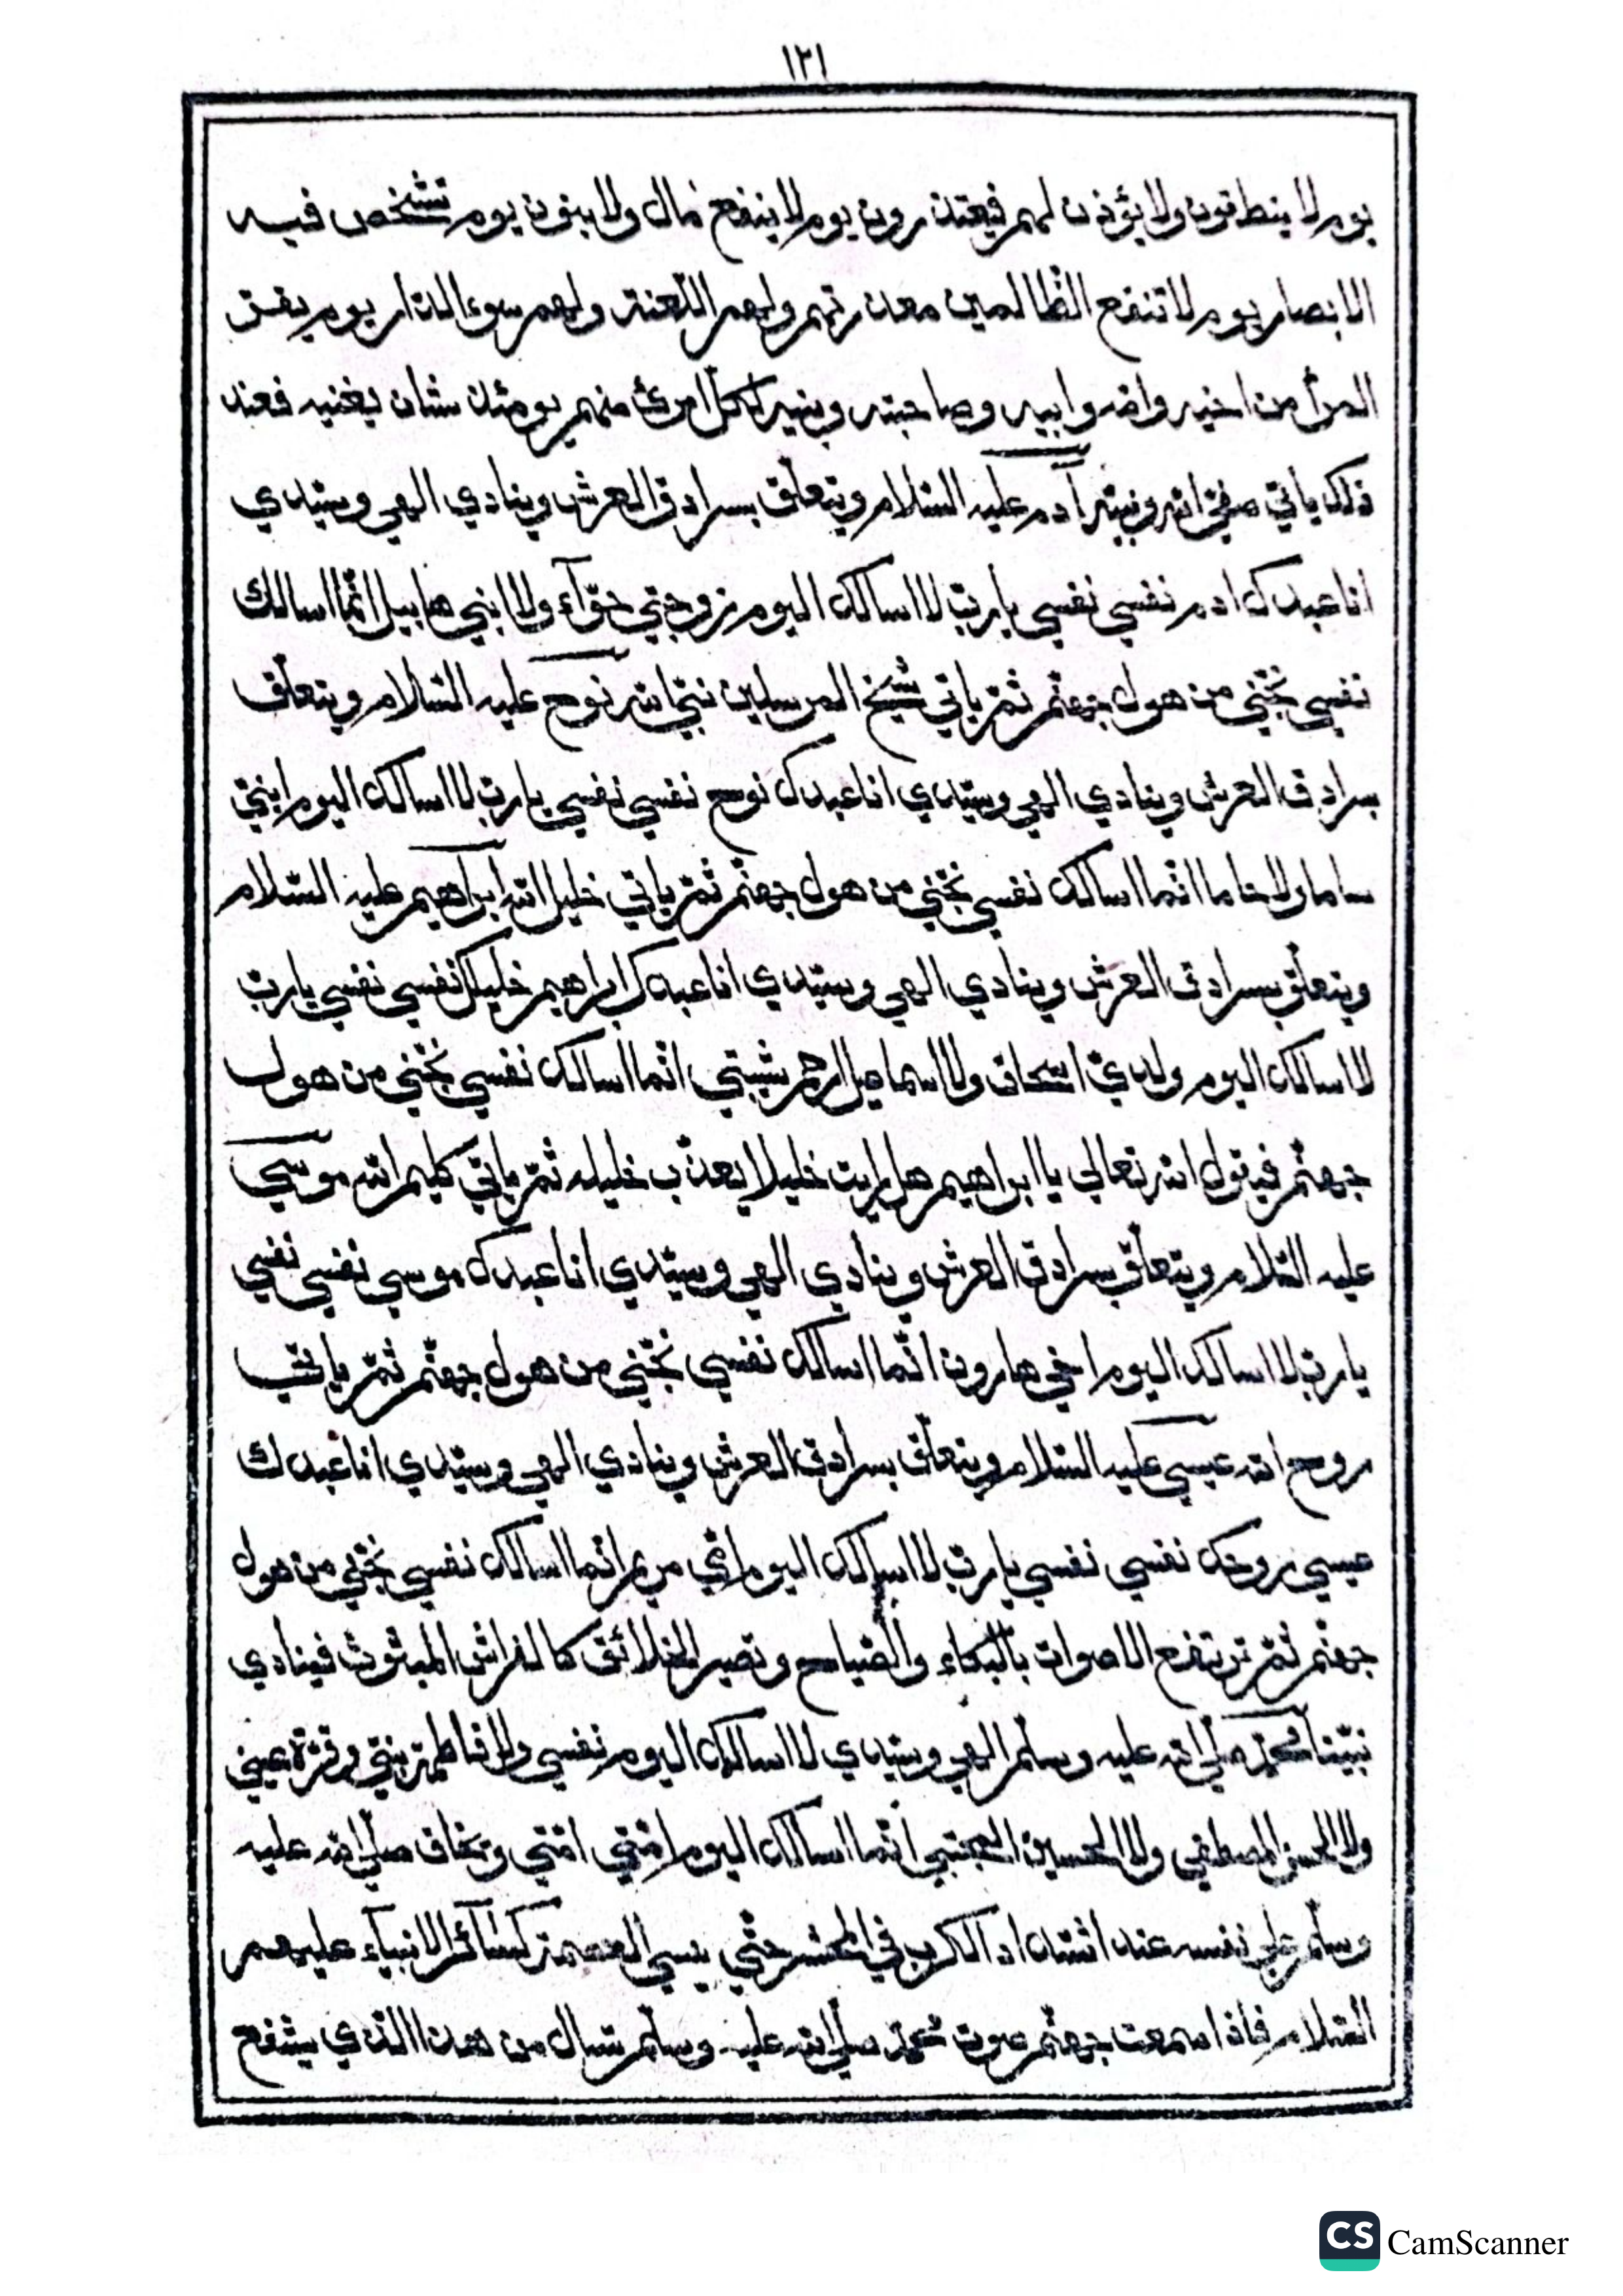 ١٢١
يوم لا ينطقون ولا يؤذن لهم فيعتذرون يوم لا ينفع مال ولا بنون يوم تشخص فيه
الابصار يوم لا تنفع الظالمين معذرتهم ولهم اللّعنة ولهم سوء الدّار يوم يفرّ
المرأ من اخيه وامّه وابيه وصاحبته وبنيه لكلّ امرئ منهم يومئذ شان يغنيه فعند
ذلك ياتي صفيّ الله ونبيّه آدم عليه السّلام ويتعلّق بسرادق العرش وينادي الهي وسيّدي
انا عبدك ادم نفسي نفسي يا ربّ لا اسالك اليوم زوجتي حوّآء ولا ابني هابيل انّما اسالك
نفسي نجّني من هول جهنّم ثمّ ياتي شيخ المرسلين نبيّ الله نوح عليه السّلام ويتعلّق
بسرادق العرش وينادي الهي وسيّدي انا عبدك نوح نفسي نفسي يا ربّ لا اسالك اليوم ابنيّ
ساما ولا حاما انّما اسالك نفسي نجّني من هول جهنّم ثمّ ياتي خليل الله ابراهيم عليه السّلام
ويتعلّق بسرادق العرش وينادي الهي وسيّدي انا عبدك ابراهيم خليلك نفسي نفسي يا ربّ
لا اسالك اليوم ولديّ اسحاق ولا اسماعيل ارحم شيبتي انّما اسالك نفسي نجّني من هول
جهنّم فيقول الله تعالي يا ابراهيم هل رايت خليلا يعذّب خليله ثمّ ياتي كليم الله موسي
عليه السّلام ويتعلّق بسرادق العرش وينادي الهي وسيّدي انا عبدك موسي نفسي نفسي
يا ربّ لا اسالك اليوم اخي هارون انّما اسالك نفسي نجّني من هول جهنّم ثمّ ياتي
روح الله عيسي عليه السّلام ويتعلّق بسرادق العرش وينادي الهي وسيّدي انا عبدك
عيسي روحك نفسي نفسي يا ربّ لا اسالك اليوم امّي مريم انّما اسالك نفسي نجّني من هول
جهنّم ثمّ ترتفع الاصوات بالبكاء والصّياح وتصير الخلائق كالفراش المبثوث فينادي
نبيّنا محمّد صلّي الله عليه وسلّم الهي وسيّدي لا اسالك اليوم نفسي ولا فاطمة بنتي وقرّة عيني
ولا الحسن المصطفي ولا الحسين المجتبي انّما اسالك اليوم امّتي امّتي ويخاف صلّي الله عليه
وسلّم علي نفسه عند اشتداد الكرب في المحشر حتّي ينسي العصمة كسآئر الانبيآء عليهم
السّلام فاذا سمعت جهنّم صوت محمّد صلّي الله عليه وسلّم تسال من هذا الّذي يشفع
CS CamScanner